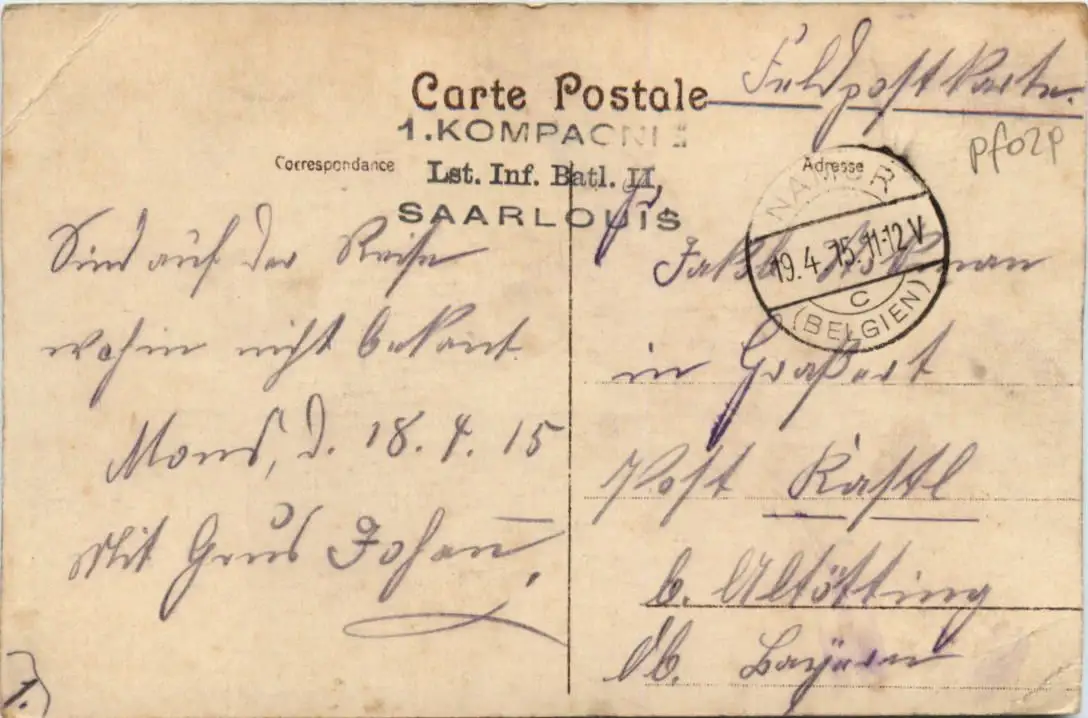 Feldpostkarte.
Carte Postale
pf02p
1.KOMPAGNIE
Correspondance
Lst. Inf. Batl. II,
Adresse
SAARLOUIS
NAMUR
19.4.15.11-12V
C
(BELGIEN)
Sind auf der Reise
wohin nicht bekant
Mons, d. 18.4.15
Mit Grus Johann,
1.
Jakob
in Graßert
Post Kastl
b. Altötting
Ob. Bayern